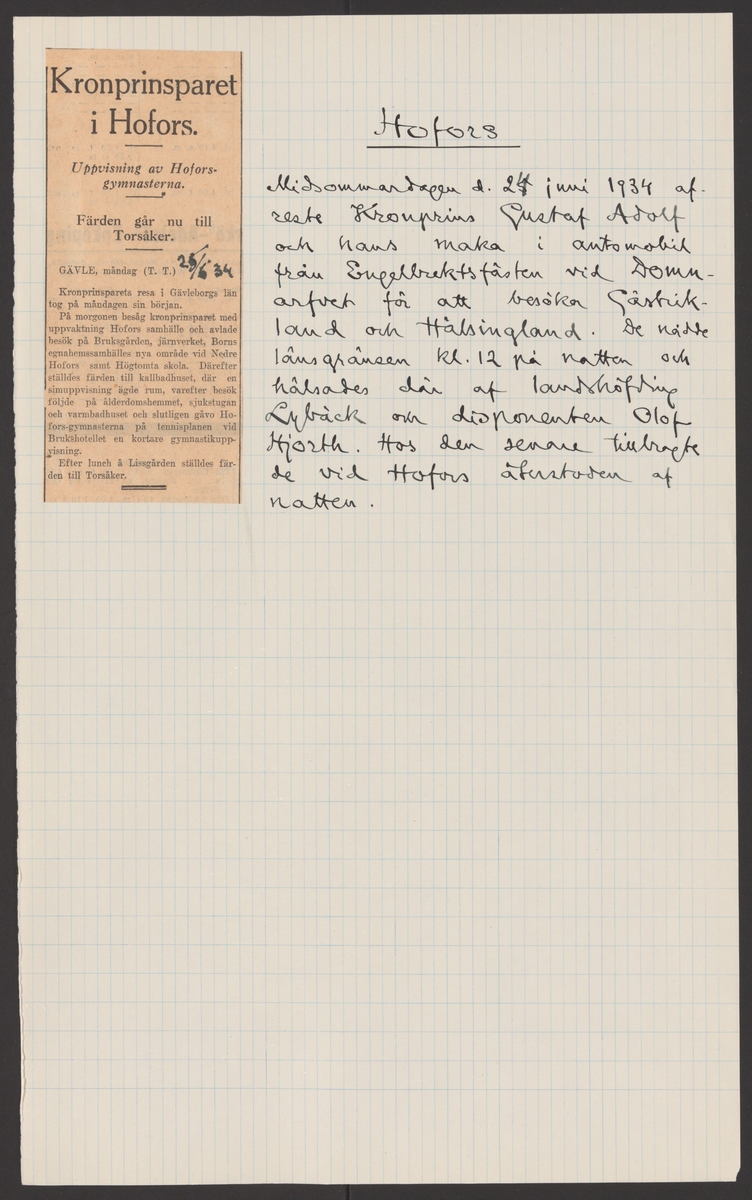 Kronprinsparet
i Hofors.
Uppvisning av Hofors-
gymnasterna.
Färden går nu till
Torsåker.
GÄVLE, måndag (T. T.) 25/6 34
Kronprinsparets resa i Gävleborgs län
tog på måndagen sin början.
På morgonen besåg kronprinsparet med
uppvaktning Hofors samhälle och avlade
besök på Bruksgården, järnverket, Borns
egnahemssamhälles nya område vid Nedre
Hofors samt Högtomta skola. Därefter
ställdes färden till kallbadhuset, där en
simuppvisning ägde rum, varefter besök
följde på ålderdomshemmet, sjukstugan
och varmbadhuset och slutligen gåvo Ho-
fors-gymnasterna på tennisplanen vid
Brukshotellet en kortare gymnastikupp-
visning.
Efter lunch å Lissgården ställdes fär-
den till Torsåker.
Hofors
Midsommardagen d. 24 juni 1934 af-
reste Kronprins Gustaf Adolf
och hans maka i automobil
från Engelbrektsfästen vid Domn-
arfvet för att besöka Gästrik-
land och Hälsingland. De nådde
länsgränsen kl. 12 på natten och
hälsades där af landshöfding
Lybäck och disponenten Olof
Hjorth. Hos den senare tillbragte
de vid Hofors återstoden af
natten.